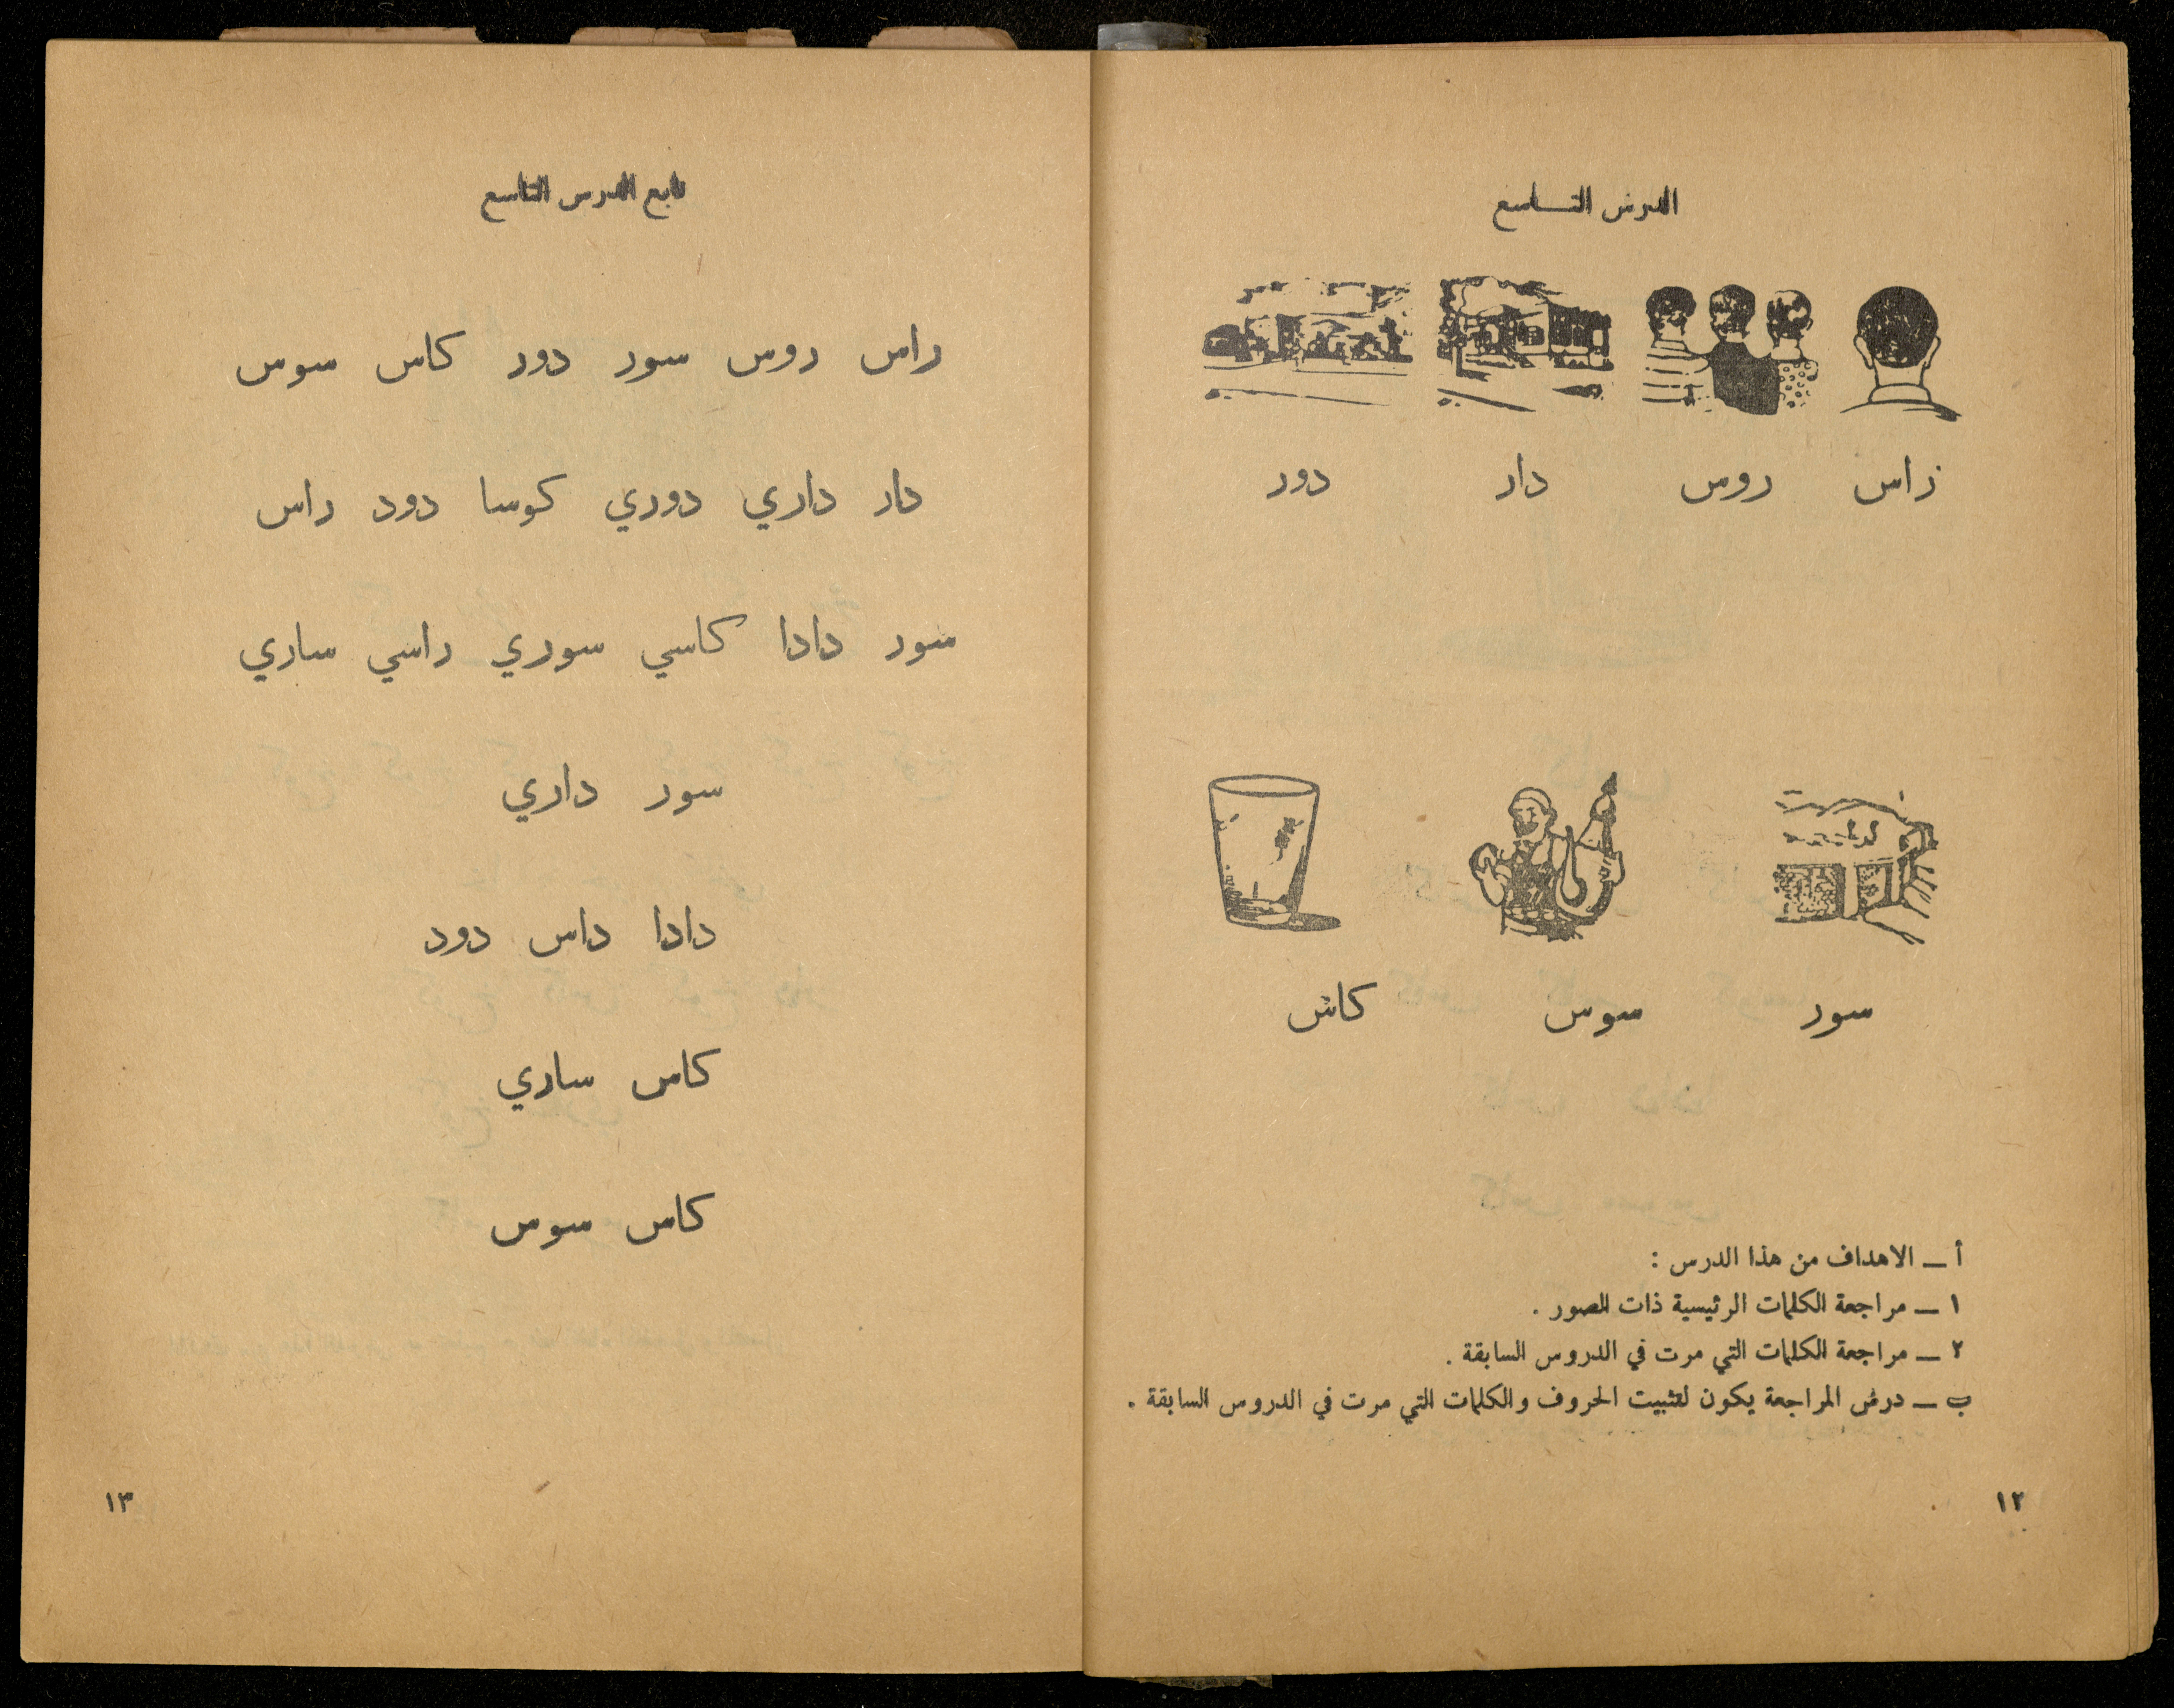 الدرس التاسع
راس روس دار دور
سور سوس كاس
أ ـ الاهداف من هذا الدرس :
١ ـ مراجعة الكلمات الرئيسية ذات الصور .
٢ ـ مراجعة الكلمات التي مرت في الدروس السابقة .
ب ـ درس المراجعة يكون لتثبيت الحروف والكلمات التي مرت في الدروس السابقة .
١٢
تابع الدرس التاسع
راس روس سور دور كاس سوس
دار داري دوري كوسا دود راس
سور دادا كاسي سوري راسي ساري
سور داري
دادا داس دود
كاس ساري
كاس سوس
١٣